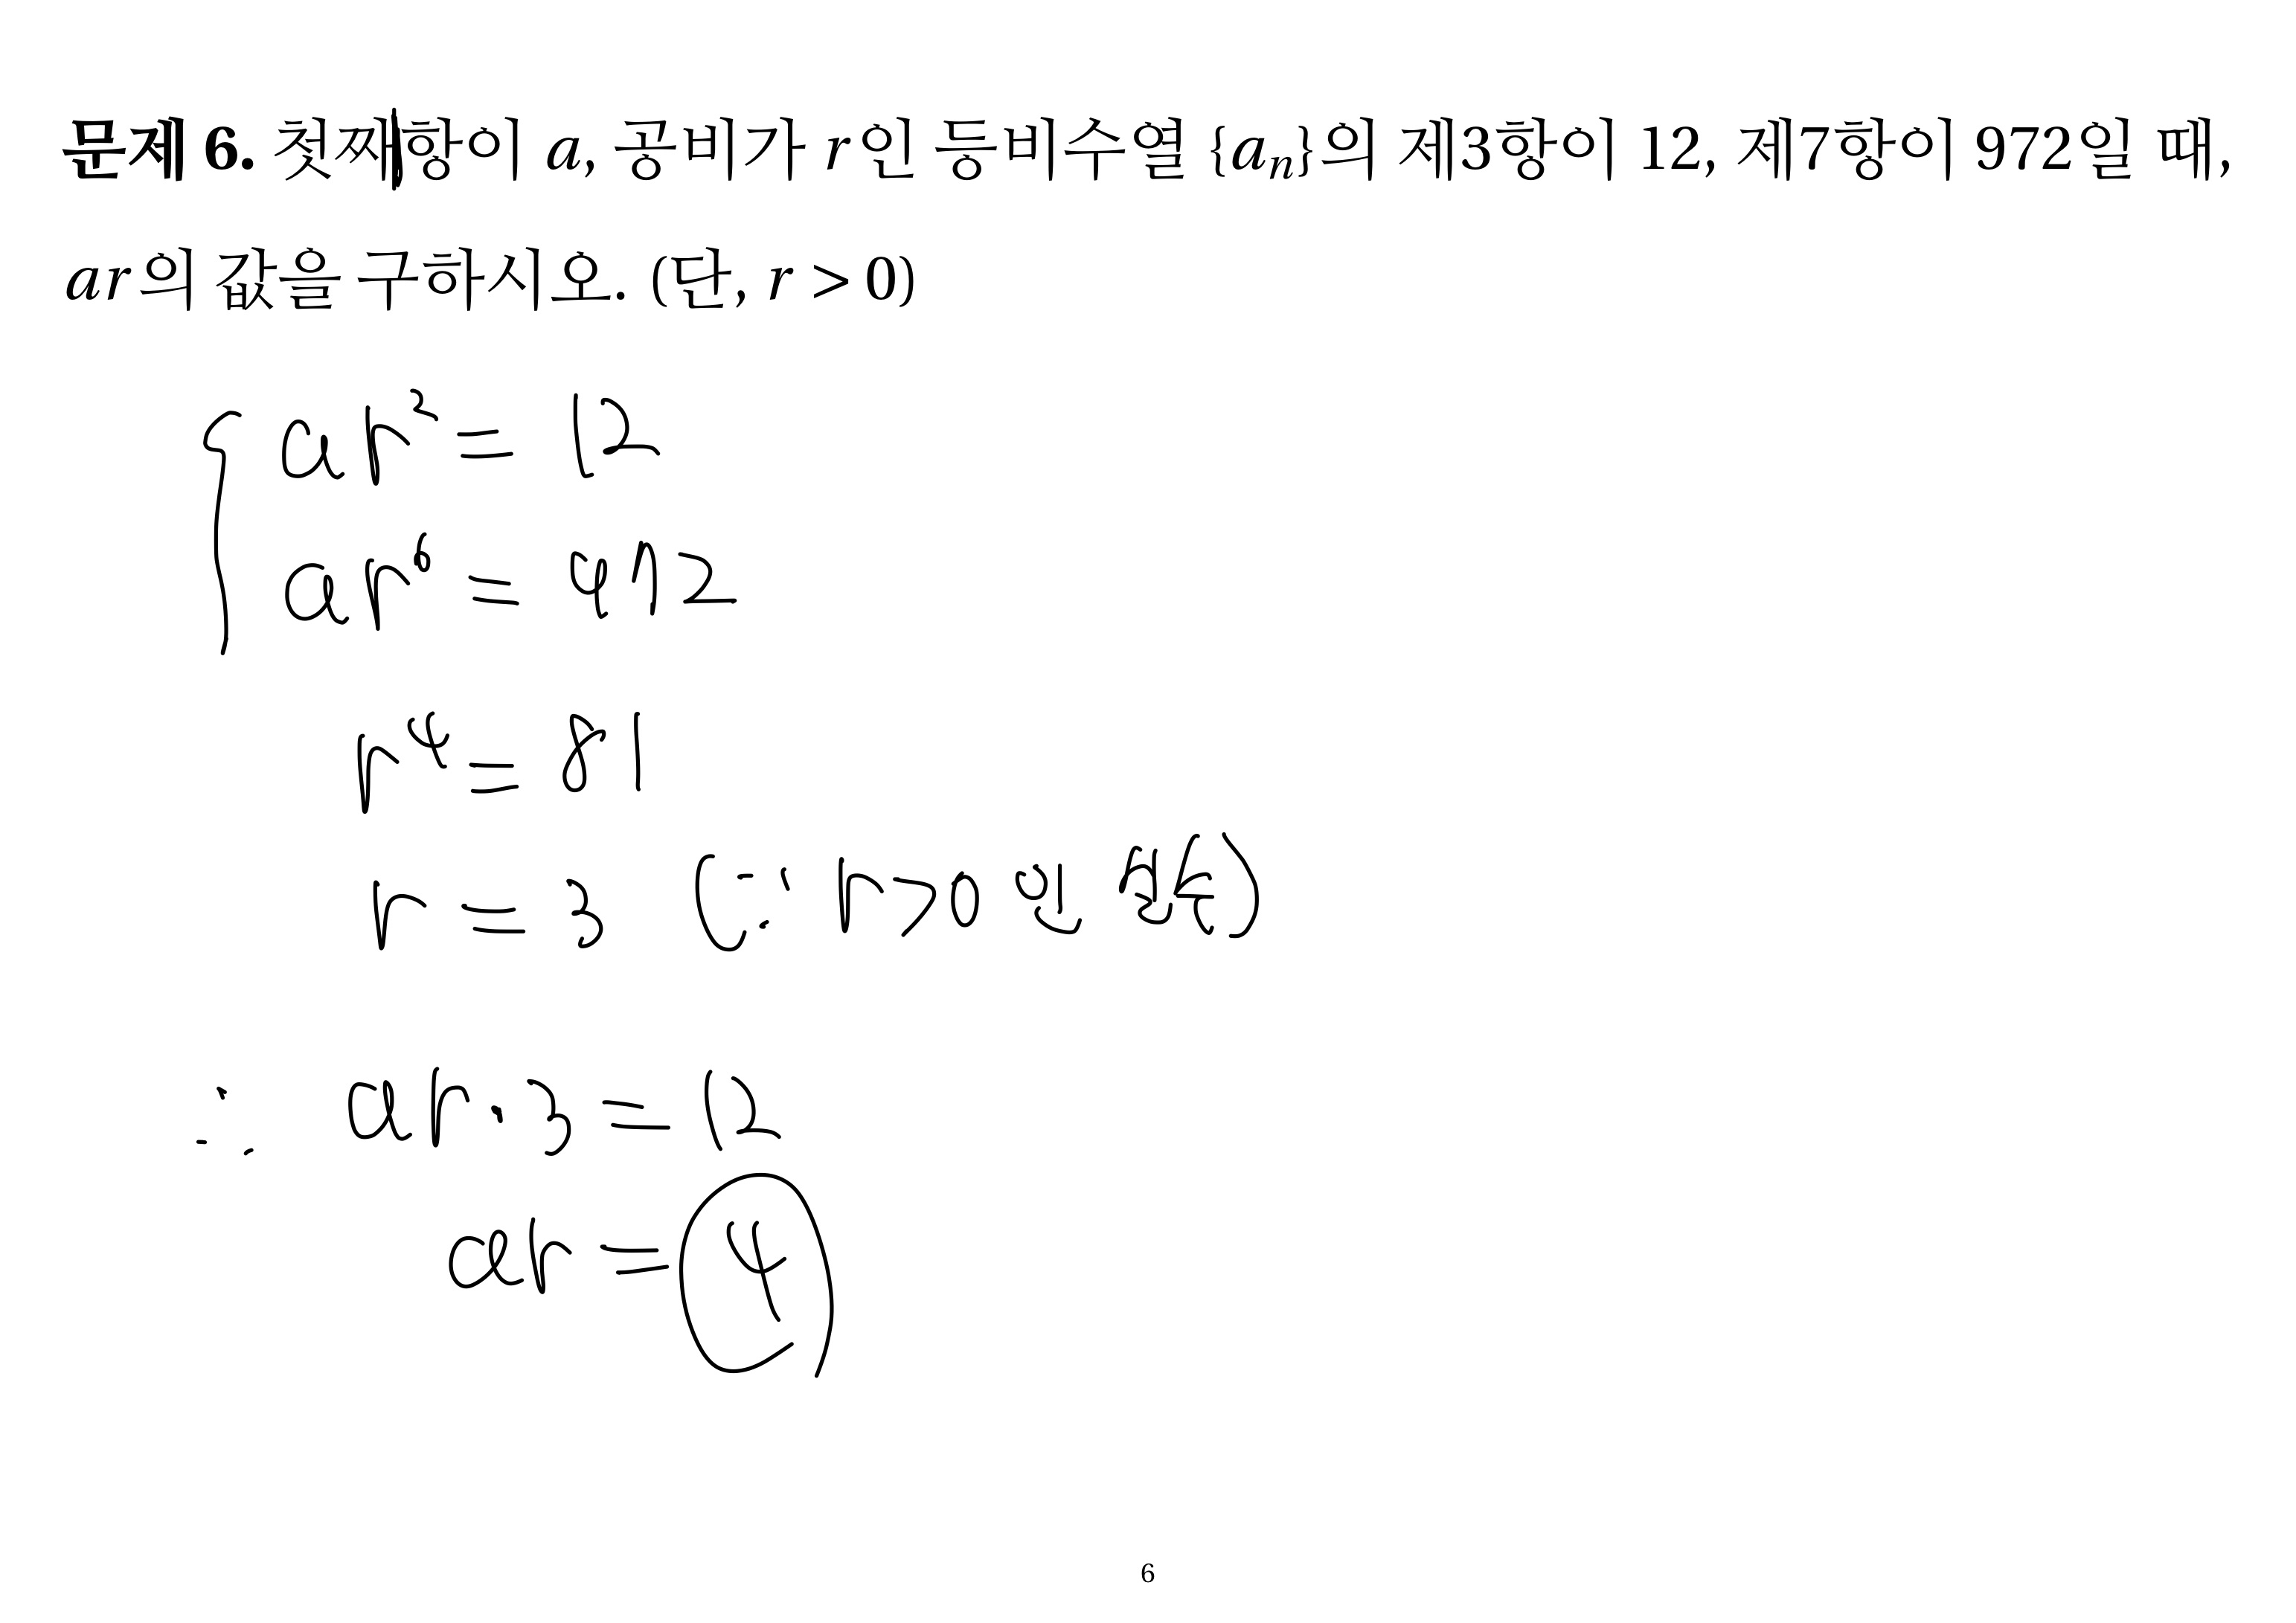 문제 6. 첫째항이 a, 공비가 r인 등비수열 {aₙ}의 제3항이 12, 제7항이 972일 때,
ar의 값을 구하시오. (단, r > 0)
ar² = 12
ar⁶ = 972
r⁴ = 81
r = 3 (∵ r>0인 실수)
∴ ar·3 = 12
ar = 4
6